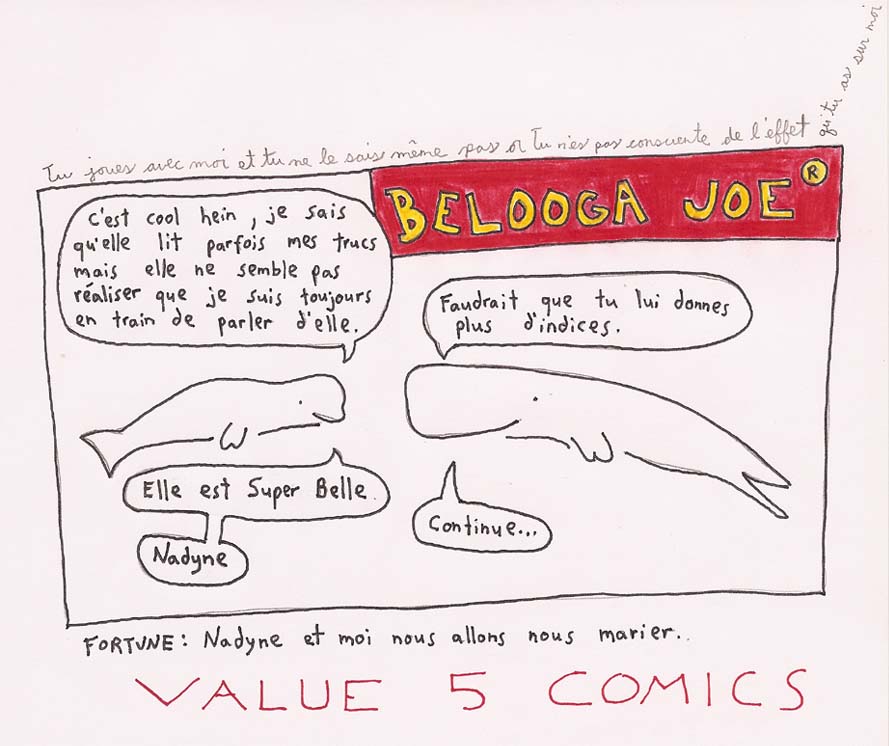 Tu joues avec moi et tu ne le sais même pas or Tu n'es pas consciente de l'effet qu'tu as sur moi
BELOOGA JOE ®
C'est cool hein, je sais
qu'elle lit parfois mes trucs
mais elle ne semble pas
réaliser que je suis toujours
en train de parler d'elle.
Faudrait que tu lui donnes
plus d'indices.
Elle est Super Belle.
Continue...
Nadyne
FORTUNE: Nadyne et moi nous allons nous marier..
VALUE 5 COMICS